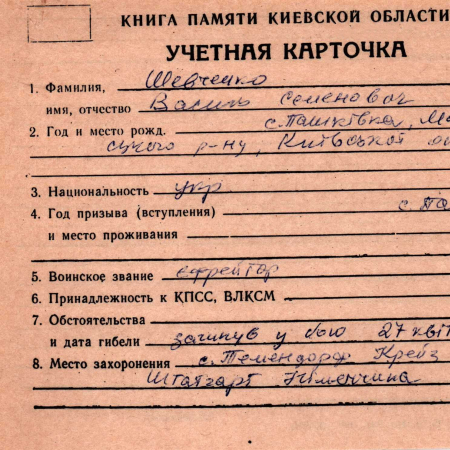 КНИГА ПАМЯТИ КИЕВСКОЙ ОБЛАСТИ
УЧЕТНАЯ КАРТОЧКА
1. Фамилия, Шевченко
имя, отчество Василь Семенович
2. Год и место рожд. с. Пашківка, Ма
р-ну, Київської об
3. Национальность укр
4. Год призыва (вступления) с. Па
и место проживания
5. Воинское звание єфрейтор
6. Принадлежность к КПСС, ВЛКСМ
7. Обстоятельства
и дата гибели загинув у бою 27 кві
8. Место захоронения с. Темендорф Крейз
Штатгарт Німеччина